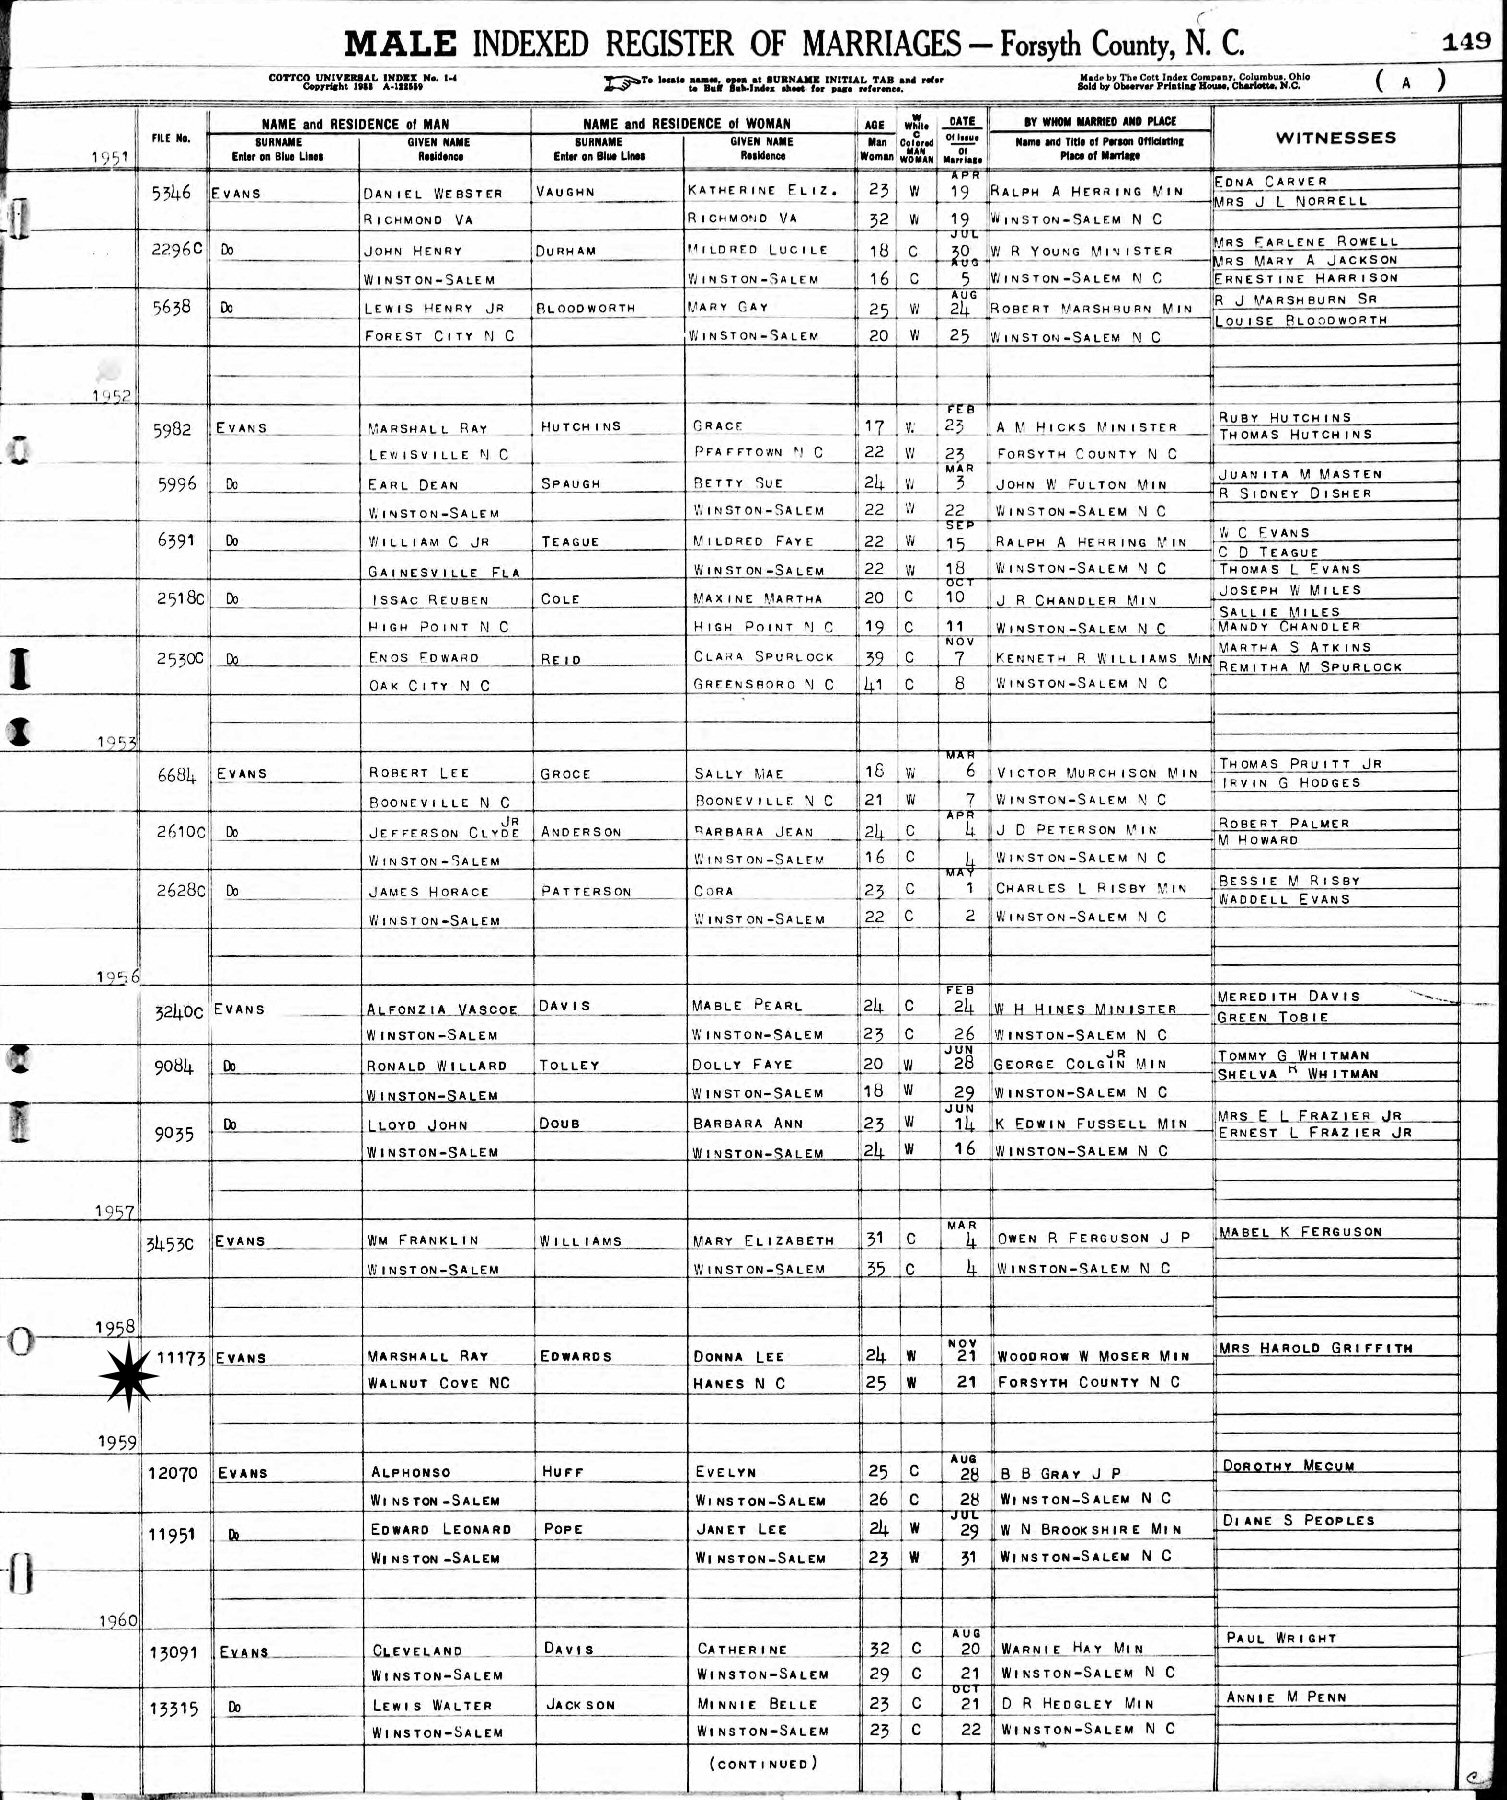 MALE INDEXED REGISTER OF MARRIAGES — Forsyth County, N. C. 149
COTTCO UNIVERSAL INDEX No. 1-4
Copyright 1935 A-112559
To locate names, open at SURNAME INITIAL TAB and refer
to Buff Sub-Index sheet for page reference.
Made by The Cott Index Company, Columbus, Ohio
Sold by Observer Printing House, Charlotte, N.C.
( A )
FILE No. NAME and RESIDENCE of MAN NAME and RESIDENCE of WOMAN AGE W White C Colored MAN WOMAN DATE BY WHOM MARRIED AND PLACE WITNESSES
SURNAME GIVEN NAME SURNAME GIVEN NAME Man Of Issue Name and Title of Person Officiating
Enter on Blue Lines Residence Enter on Blue Lines Residence Woman Of Marriage Place of Marriage
1951
5346 EVANS DANIEL WEBSTER VAUGHN KATHERINE ELIZ. 23 W APR 19 RALPH A HERRING MIN EDNA CARVER
MRS J L NORRELL
RICHMOND VA RICHMOND VA 32 W 19 WINSTON-SALEM N C
2296C Do JOHN HENRY DURHAM MILDRED LUCILE 18 C JUL 30 W R YOUNG MINISTER MRS EARLENE ROWELL
MRS MARY A JACKSON
WINSTON-SALEM WINSTON-SALEM 16 C AUG 5 WINSTON-SALEM N C ERNESTINE HARRISON
5638 Do LEWIS HENRY JR BLOODWORTH MARY GAY 25 W AUG 24 ROBERT MARSHBURN MIN R J MARSHBURN SR
LOUISE BLOODWORTH
FOREST CITY N C WINSTON-SALEM 20 W 25 WINSTON-SALEM N C
1952
5982 EVANS MARSHALL RAY HUTCHINS GRACE 17 W. FEB 23 A M HICKS MINISTER RUBY HUTCHINS
THOMAS HUTCHINS
LEWISVILLE N C PFAFFTOWN N C 22 W 23 FORSYTH COUNTY N C
5996 Do EARL DEAN SPAUGH BETTY SUE 24 W MAR 3 JOHN W FULTON MIN JUANITA M MASTEN
R SIDNEY DISHER
WINSTON-SALEM WINSTON-SALEM 22 W 22 WINSTON-SALEM N C
6391 Do WILLIAM C JR TEAGUE MILDRED FAYE 22 W SEP 15 RALPH A HERRING MIN W C EVANS
C D TEAGUE
GAINESVILLE FLA WINSTON-SALEM 22 W 18 WINSTON-SALEM N C THOMAS L EVANS
2518C Do ISSAC REUBEN COLE MAXINE MARTHA 20 C OCT 10 J R CHANDLER MIN JOSEPH W MILES
SALLIE MILES
HIGH POINT N C HIGH POINT N C 19 C 11 WINSTON-SALEM N C MANDY CHANDLER
2530C Do ENOS EDWARD REID CLARA SPURLOCK 39 C NOV 7 KENNETH R WILLIAMS MIN MARTHA S ATKINS
REMITHA M SPURLOCK
OAK CITY N C GREENSBORO N C 41 C 8 WINSTON-SALEM N C
1953
6684 EVANS ROBERT LEE GROCE SALLY MAE 18 W MAR 6 VICTOR MURCHISON MIN THOMAS PRUITT JR
IRVIN G HODGES
BOONEVILLE N C BOONEVILLE N C 21 W 7 WINSTON-SALEM N C
2610C Do JEFFERSON CLYDE JR ANDERSON BARBARA JEAN 24 C APR 4 J D PETERSON MIN ROBERT PALMER
M HOWARD
WINSTON-SALEM WINSTON-SALEM 16 C 4 WINSTON-SALEM N C
2628C Do JAMES HORACE PATTERSON CORA 23 C MAY 1 CHARLES L RISBY MIN BESSIE M RISBY
WADDELL EVANS
WINSTON-SALEM WINSTON-SALEM 22 C 2 WINSTON-SALEM N C
1956
3240C EVANS ALFONZIA VASCOE DAVIS MABLE PEARL 24 C FEB 24 W H HINES MINISTER MEREDITH DAVIS
GREEN TOBIE
WINSTON-SALEM WINSTON-SALEM 23 C 26 WINSTON-SALEM N C
9084 Do RONALD WILLARD TOLLEY DOLLY FAYE 20 W JUN 28 GEORGE COLGIN JR MIN TOMMY G WHITMAN
SHELVA WHITMAN
WINSTON-SALEM WINSTON-SALEM 18 W 29 WINSTON-SALEM N C
9035 Do LLOYD JOHN DOUB BARBARA ANN 23 W JUN 14 K EDWIN FUSSELL MIN MRS E L FRAZIER JR
ERNEST L FRAZIER JR
WINSTON-SALEM WINSTON-SALEM 24 W 16 WINSTON-SALEM N C
1957
3453C EVANS WM FRANKLIN WILLIAMS MARY ELIZABETH 31 C MAR 4 OWEN R FERGUSON J P MABEL K FERGUSON
WINSTON-SALEM WINSTON-SALEM 35 C 4 WINSTON-SALEM N C
1958
11173 EVANS MARSHALL RAY EDWARDS DONNA LEE 24 W NOV 21 WOODROW W MOSER MIN MRS HAROLD GRIFFITH
WALNUT COVE NC HANES N C 25 W 21 FORSYTH COUNTY N C
1959
12070 EVANS ALPHONSO HUFF EVELYN 25 C AUG 28 B B GRAY J P DOROTHY MECUM
WINSTON-SALEM WINSTON-SALEM 26 C 28 WINSTON-SALEM N C
11951 Do EDWARD LEONARD POPE JANET LEE 24 W JUL 29 W N BROOKSHIRE MIN DIANE S PEOPLES
WINSTON-SALEM WINSTON-SALEM 23 W 31 WINSTON-SALEM N C
1960
13091 EVANS CLEVELAND DAVIS CATHERINE 32 C AUG 20 WARNIE HAY MIN PAUL WRIGHT
WINSTON-SALEM WINSTON-SALEM 29 C 21 WINSTON-SALEM N C
13315 Do LEWIS WALTER JACKSON MINNIE BELLE 23 C OCT 21 D R HEDGLEY MIN ANNIE M PENN
WINSTON-SALEM WINSTON-SALEM 23 C 22 WINSTON-SALEM N C
(CONTINUED)